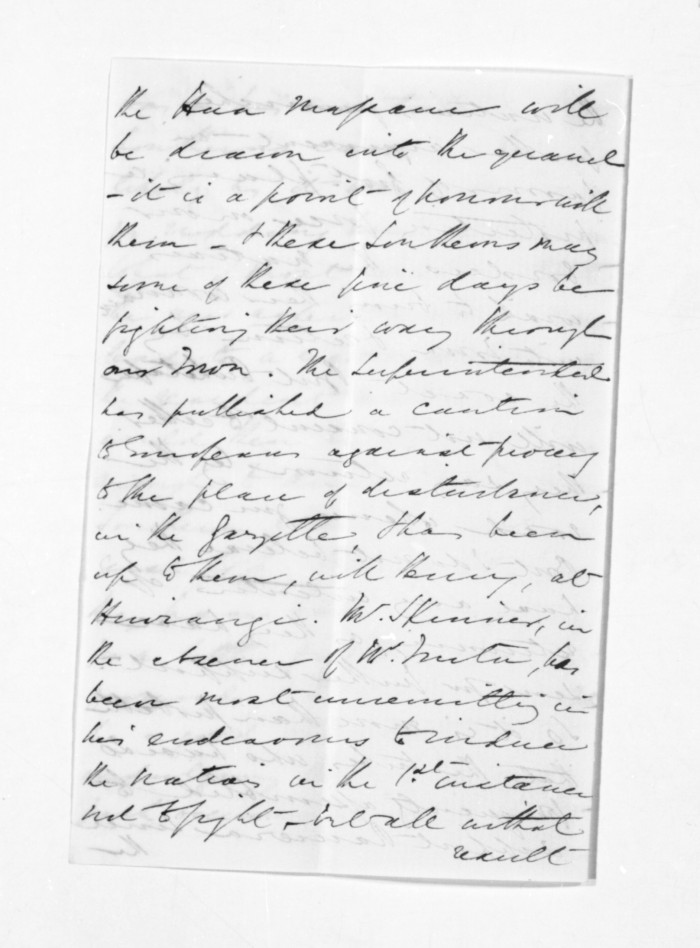 the Hua Mapanu will
be drawn into the quarrel
- it is a point of honour with
them - & these Southerns may
some of these fine days be
fighting their way through
our Town. The Superintendent
has published a caution
to Europeans against proceeg
to the place of disturbance,
in the Gazette, & has been
up to them, with Henry, at
Huirangi. Mr. Skinner, in
the absence of Mr. Turton, has
been most unremitting in
his endeavours to induce
the natives in the 1st. instance
not to fight, but all without
result